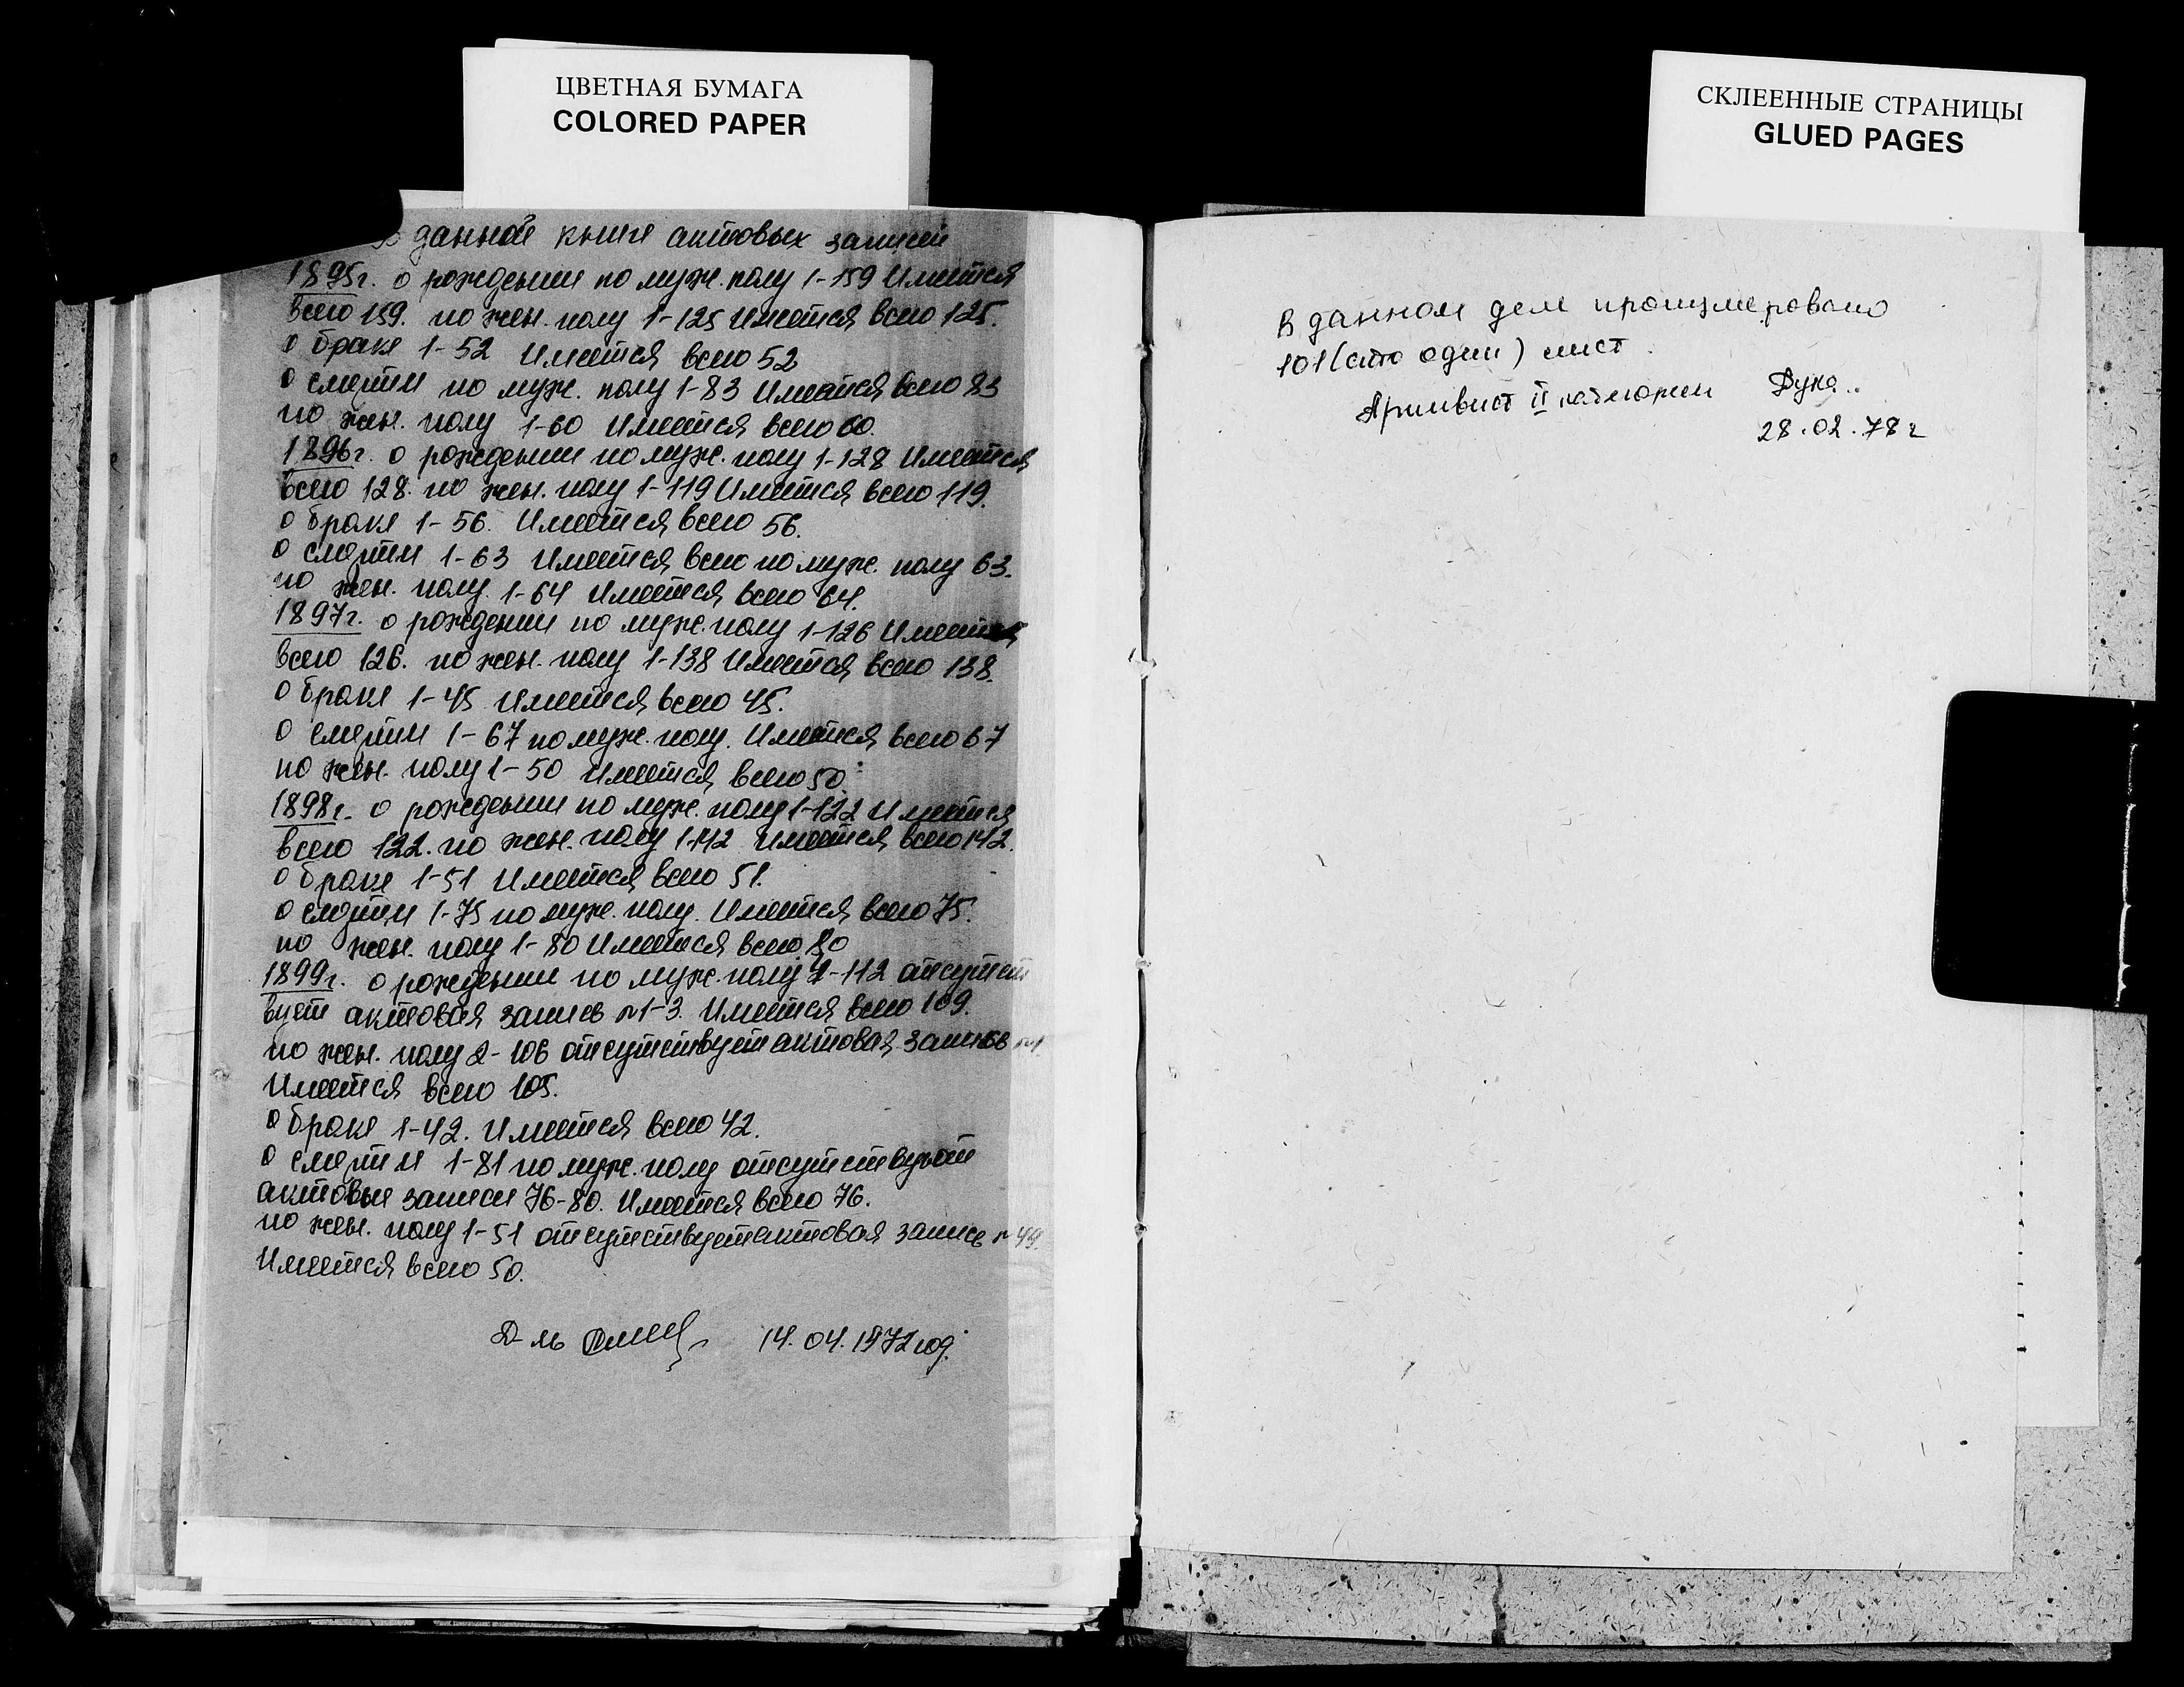 ЦВЕТНАЯ БУМАГА
COLORED PAPER
В данной книге актовых записей
1895г. о рождении по муж. полу 1-159 Имеется
всего 159. по жен. полу 1-125 Имеется всего 125.
о браке 1-52 Имеется всего 52
о смерти по муж. полу 1-83 Имеется всего 83
по жен. полу 1-60 Имеется всего 60.
1896г. о рождении по муж. полу 1-128 Имеется
всего 128. по жен. полу 1-119 Имеется всего 119.
о браке 1-56. Имеется всего 56.
о смерти 1-63 Имеется всего по муж. полу 63.
по жен. полу. 1-64 Имеется всего 64.
1897г. о рождении по муж. полу 1-126 Имеется
всего 126. по жен. полу 1-138 Имеется всего 138.
о браке 1-45 Имеется всего 45.
о смерти 1-67 по муж. полу. Имеется всего 67
по жен. полу 1-50 Имеется всего 50.
1898г. о рождении по муж. полу 1-122 Имеется
всего 122. по жен. полу 1-142 Имеется всего 142.
о браке 1-51 Имеется всего 51.
о смерти 1-75 по муж. полу. Имеется всего 75.
по жен. полу 1-80 Имеется всего 80
1899г. о рождении по муж. полу 4-112 отсутст
вует актовая запись №1-3. Имеется всего 109.
по жен. полу 2-106 отсутствует актовая запись №1.
Имеется всего 105.
о браке 1-42. Имеется всего 42.
о смерти 1-81 по муж. полу отсутствуют
актовые записи 76-80. Имеется всего 76.
по жен. полу 1-51 отсутствует актовая запись №49.
Имеется всего 50.
Д-ль 14.04.1972 год.
СКЛЕЕННЫЕ СТРАНИЦЫ
GLUED PAGES
В данном деле пронумеровано
101 (сто один) лист.
Архивист II категории
28.02.78 г